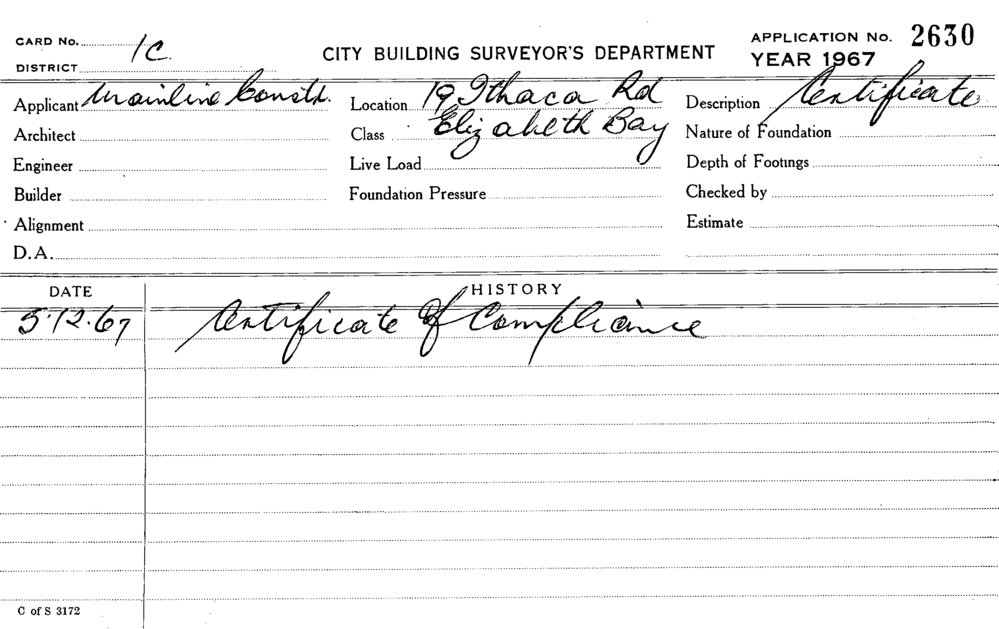 CARD No. 1C
DISTRICT
CITY BUILDING SURVEYOR'S DEPARTMENT
APPLICATION No. 2630
YEAR 1967
Applicant Mainline Constr. Location 19 Ithaca Rd Description Certificate
Architect Class Elizabeth Bay Nature of Foundation
Engineer Live Load Depth of Footings
Builder Foundation Pressure Checked by
Alignment Estimate
D.A.
DATE HISTORY
5.12.67 Certificate of Compliance
C of S 3172